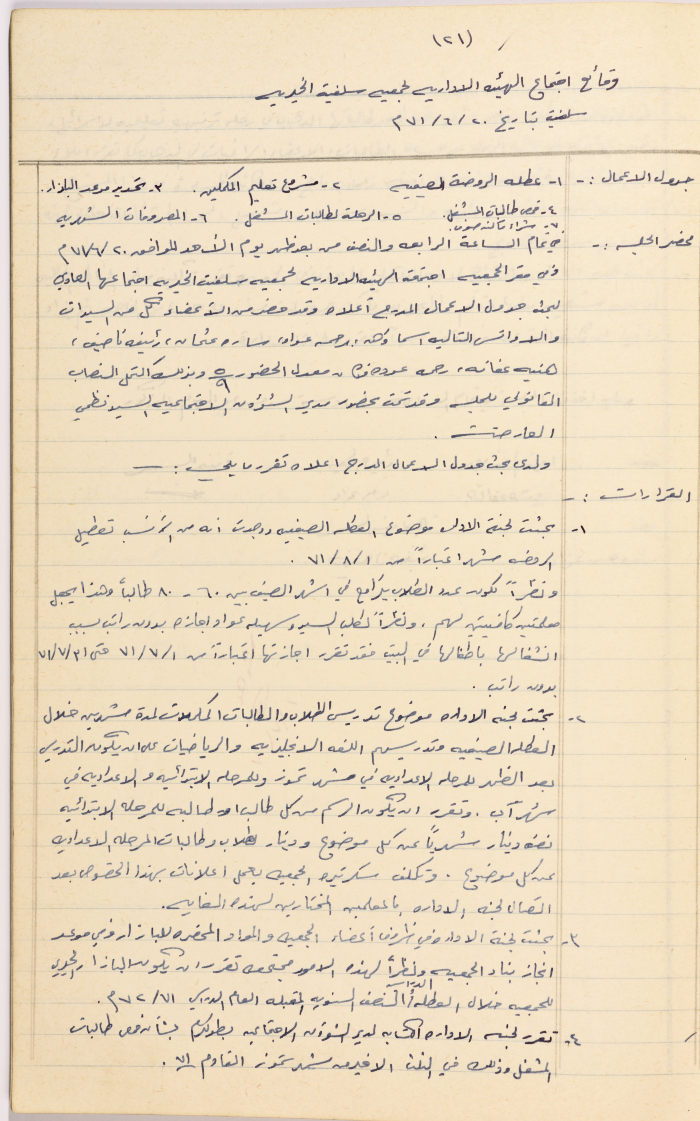 (٢١)
وقائع اجتماع الهيئه الاداريه لجمعيه سلفيت الخيريه
سلفيت بتاريخ ٧١/٦/٢٠م
جدول الاعمال :- ١- عطله الروضة الصيفيه ٢- مشروع تعليم المكملين. ٣- تحديد موعد البازار.
٤- فحص طالبات المشغل. ٥- الرحلة لطالبات المشغل. ٦- المصروفات الشهريه
٧- شراء
محضر الجلسه :- في تمام الساعة الرابعه والنصف من بعد ظهر يوم الأحد الموافق ٧١/٦/٢٠م
وفي مقر الجمعيه اجتمعت الهيئه الاداريه لجمعيه سلفيت الخيريه اجتماعها العادي
لبحث جدول الاعمال المدرج أعلاه وقد حضر من الأعضاء كل من السيدات
والاوانس التاليه اسماؤهن: عواد، ساره عثمان، رئيفه ناصيف،
هنيه عفانه، عوده وكان معدل الحضور ٥/٩ وبذلك اكتمل النصاب
القانوني للجلسه وقد تمت بحضور مدير الشؤون الاجتماعيه السيد نظمي
.
ولدى بحث جدول الاعمال المدرج اعلاه تقرر ما يلي :-
القرارات :-
١- بحثت لجنة الاداره موضوع العطله الصيفيه ووجدت انه من الأنسب تعطيل
الروضه شهرا اعتباراً من ٧١/٨/١ .
ونظراً لكون عدد الطلاب يتراوح في اشهر الصيف بين ٦٠ - ٨٠ طالباً وهذا يجعل
معلمتين كافيتين لهم، ونظراً لطلب السيده سهيله عواد اجازه بدون راتب بسبب
انشغالها باطفالها في البيت فقد تقرر اجازتها اعتباراً من ٧١/٧/١ حتى ٧١/٧/٣١
بدون راتب .
٢- بحثت لجنه الاداره موضوع تدريس الطلاب والطالبات المكملات لمدة شهرين خلال
العطله الصيفيه وتدريسهم اللغه الانجليزيه والرياضيات على ان يكون التدريس
بعد الظهر للمرحله الاعداديه في شهر تموز وللمرحله الابتدائيه والاعداديه في
شهر آب. وتقرر ان يكون الرسم من كل طالب او طالبه للمرحله الابتدائيه
نصف دينار شهرياً عن كل موضوع ودينار لطلاب وطالبات المرحله الاعداديه
عن كل موضوع . وتكلف سكرتيره الجمعيه بعمل اعلانات بهذا الخصوص بعد
اتصال لجنه الاداره بالمعلمين المختارين لهذه الغايه.
٣- بحثت لجنة الاداره في ظروف أعضاء الجمعيه والمواد المحضره للبازار وفي موعد
انجاز بناء الجمعيه ونظراً لهذه الامور مجتمعه تقرر ان يكون البازار الخيري
للجمعيه خلال العطله الدراسيه النصف السنويه المقبله العام الدراسي ٧٢/٧١م.
٤- تقرر لجنه الاداره الكتابه لمدير الشؤون الاجتماعيه بطولكرم بشأن فحص طالبات
المشغل وذلك في الثلث الاخير من شهر تموز القادم ٧١ .